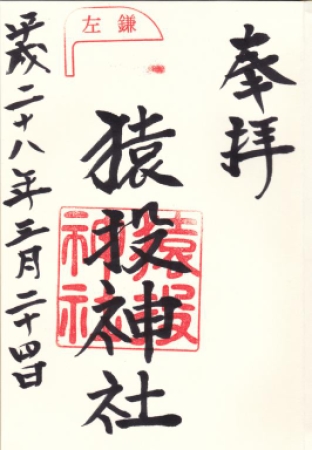 奉拝
猿投神社
猿投神社
左鎌
平成二十八年三月二十四日